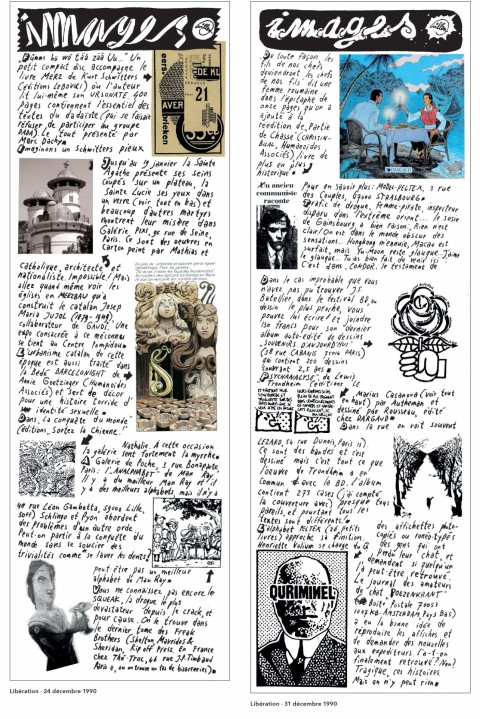 images
"Bümms bö wö tää zää Uu..." Un
petit compact disc accompagne le
livre MERZ de Kurt Schwitters
(éditions LEBOVICI) où l'auteur
lit lui-même son URSONATE. 400
pages contiennent l'essentiel des
textes du dadaïste (qui se faisait
refuser de participer au groupe
DADA). Le tout présenté par
Marc Dachy.
Imaginons un Schwitters pieux
Jusqu'au 19 janvier la Sainte
Agathe présente ses seins
coupés sur un plateau, la
Sainte Lucie ses yeux dans
un verre (voir tout en bas) et
beaucoup d'autres martyrs
montrent leur misère dans
Galerie PIXI, 95 rue de Seine,
Paris. Ce sont des oeuvres en
carton peint par Mathias et
Catholique, architecte et
rationaliste. Impossible! Mais
allez quand même voir les
églises en MERZBAU qu'a
construit le catalan Josep
Maria JUJOL (1879-1949)
collaborateur de GAUDI. Une
expo consacrée à ce méconnu
se tient au Centre Pompidou.
L'urbanisme catalan de cette
époque est aussi traité dans
la Bédé BARCELONIGHT de
Annie Goetzinger (Humanoïdes
Associés) et sert de décor
pour une histoire torride d'
identité sexuelle.
Dans, La conquête du monde
(édition, Sortez la Chienne,
Nathalie. A cette occasion
la galerie sent fortement la myrrhe.
A Galerie de Poche, 3 rue Bonaparte,
Paris: l'"ANALPHABET" de Man Ray.
Il y a du meilleur Man Ray et il y
a des meilleurs alphabets, mais il n'y a
40 rue Léon Gambetta, 59000 Lille,
30FF) Schlingo et Pyon abordent
des problèmes d'un autre ordre.
Peut-on partir à la conquête du
monde sans se soucier des
trivialités comme "se laver les dents?
peut être pas un meilleur
alphabet de Man Ray.
Vous ne connaissez pas encore le
SQUEAK, la drogue la plus
dévastateur depuis le crack, et
pour cause. On le trouve dans
le dernier tome des Freak
Brothers (Shelton, Mavrides &
Sheridan, Rip off Press. En France
chez Thé-Troc, 46 rue J.P. Timbaud
Paris 11, ou on trouve un tas de bizarreries).
Libération - 24 décembre 1990
images
De toute façon les
fils de nos chefs
deviendront les chefs
de nos fils" dit une
femme roumaine
dans l'épitaphe de
onze pages qu'on a
ajouté à la
réédition de Partie
de Chasse (CHRISTIN-
BILAL, Humanoïdes
Associés) livre de
plus en plus
historique
Un ancien
communiste
raconte
Pour en savoir plus: MODEL-PELTEX, 3 rue
des Couples, 67000 STRASBOURG
Trafic de drogue, femme-pirate, inspecteur
disparu dans l'extrême orient... le sosie
de Gainsbourg a bien raison, Rien n'est
clair! On est dans le monde obscur des
sensations... Hongkong m'ennuie, Macao est
surfait, mais Yu-Moon reste glauque. J'aime
le glauque. Tu as bien fait de venir ici"
C'est dans, CONDOR, le testament de
Dans le cas improbable que vous
n'avez pas pu trouver J.F.
Batellier, dans le festival BD, ou
dessin le plus proche, vous
pouvez lui écrire! et joindre
150 francs pour son dernier
album auto-édité de dessins
"SOUVENIRS D'AUJOURD'HUI"
(38 rue CABANIS 75014 PARIS)
qui contient 250 dessins
couvrant 2,5 ans.
PSYCHANALYSE, de Lewis
Trondheim (éditions LE
Marius Casanova (voir tout
en haut) par Autheman et
dessiné par Rousseau, édité
chez DARGAUD
Dans la rue on voit souvent
LEZARD, 54 rue Dunois, Paris 13).
Ce sont des bandes et c'est
dessiné mais c'est tout ce que
l'oeuvre de Trondheim a en
commun avec la BD. L'album
contient 273 cases (j'ai compté
la couverture avec) presque tous
pareils, et pourtant tous les
textes sont différents.
L'alphabet PELTEX (26 petits
livres) approche sa finition.
Henriette Valium se charge du Q
des affichettes photo-
copiés ou ronéo-typés
des gens qui ont
perdu leur chat, et
demandent si quelqu'un
l'a peut-être retrouvé.
Le journal des amateurs
de chat "POEZENKRANT"
Boîte Postale 70053
1007 KB. AMSTERDAM, Pays Bas)
a eu la bonne idée de
réproduire les affiches et
de demander des nouvelles
aux expéditeurs. L'a-t-on
finalement retrouvé? Non?
Tragique, ces histoires.
Mais on n'y peut rien.
OURIMINEL
Libération - 31 décembre 1990